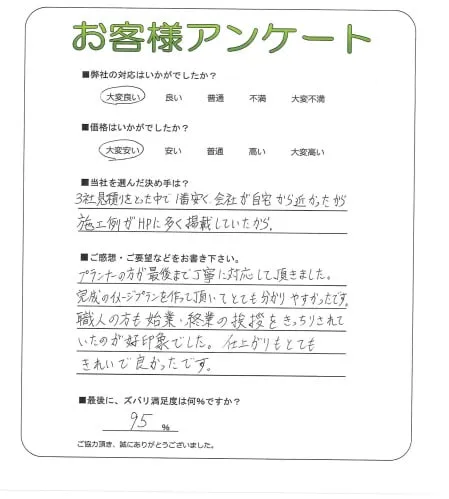 お客様アンケート
■弊社の対応はいかがでしたか？
大変良い 良い 普通 不満 大変不満
■価格はいかがでしたか？
大変安い 安い 普通 高い 大変高い
■当社を選んだ決め手は？
3社見積りをとった中で1番安く、会社が自宅から近かったから
施工例がHPに多く掲載していたから。
■ご感想・ご要望などをお書き下さい。
プランナーの方が最後まで丁寧に対応して頂きました。
完成のイメージプランを作って頂いてとても分かりやすかったです。
職人の方も始業・終業の挨拶をきっちりされて
いたのが好印象でした。仕上がりもとても
きれいで良かったです。
■最後に、ズバリ満足度は何%ですか？
95 %
ご協力頂き、誠にありがとうございました。